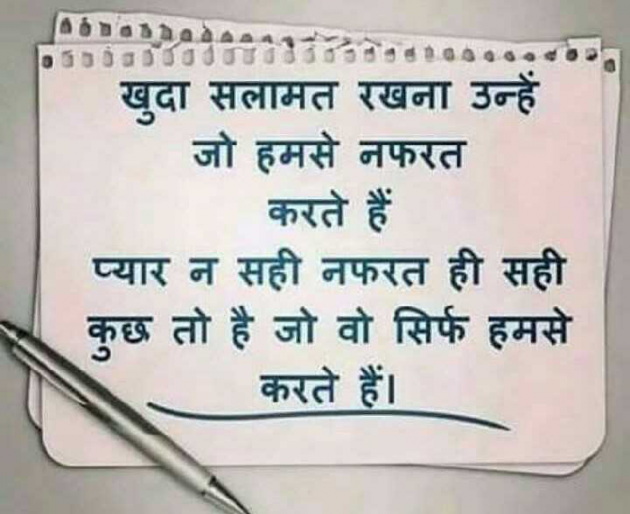 खुदा सलामत रखना उन्हें
जो हमसे नफरत
करते हैं
प्यार न सही नफरत ही सही
कुछ तो है जो वो सिर्फ हमसे
करते हैं।